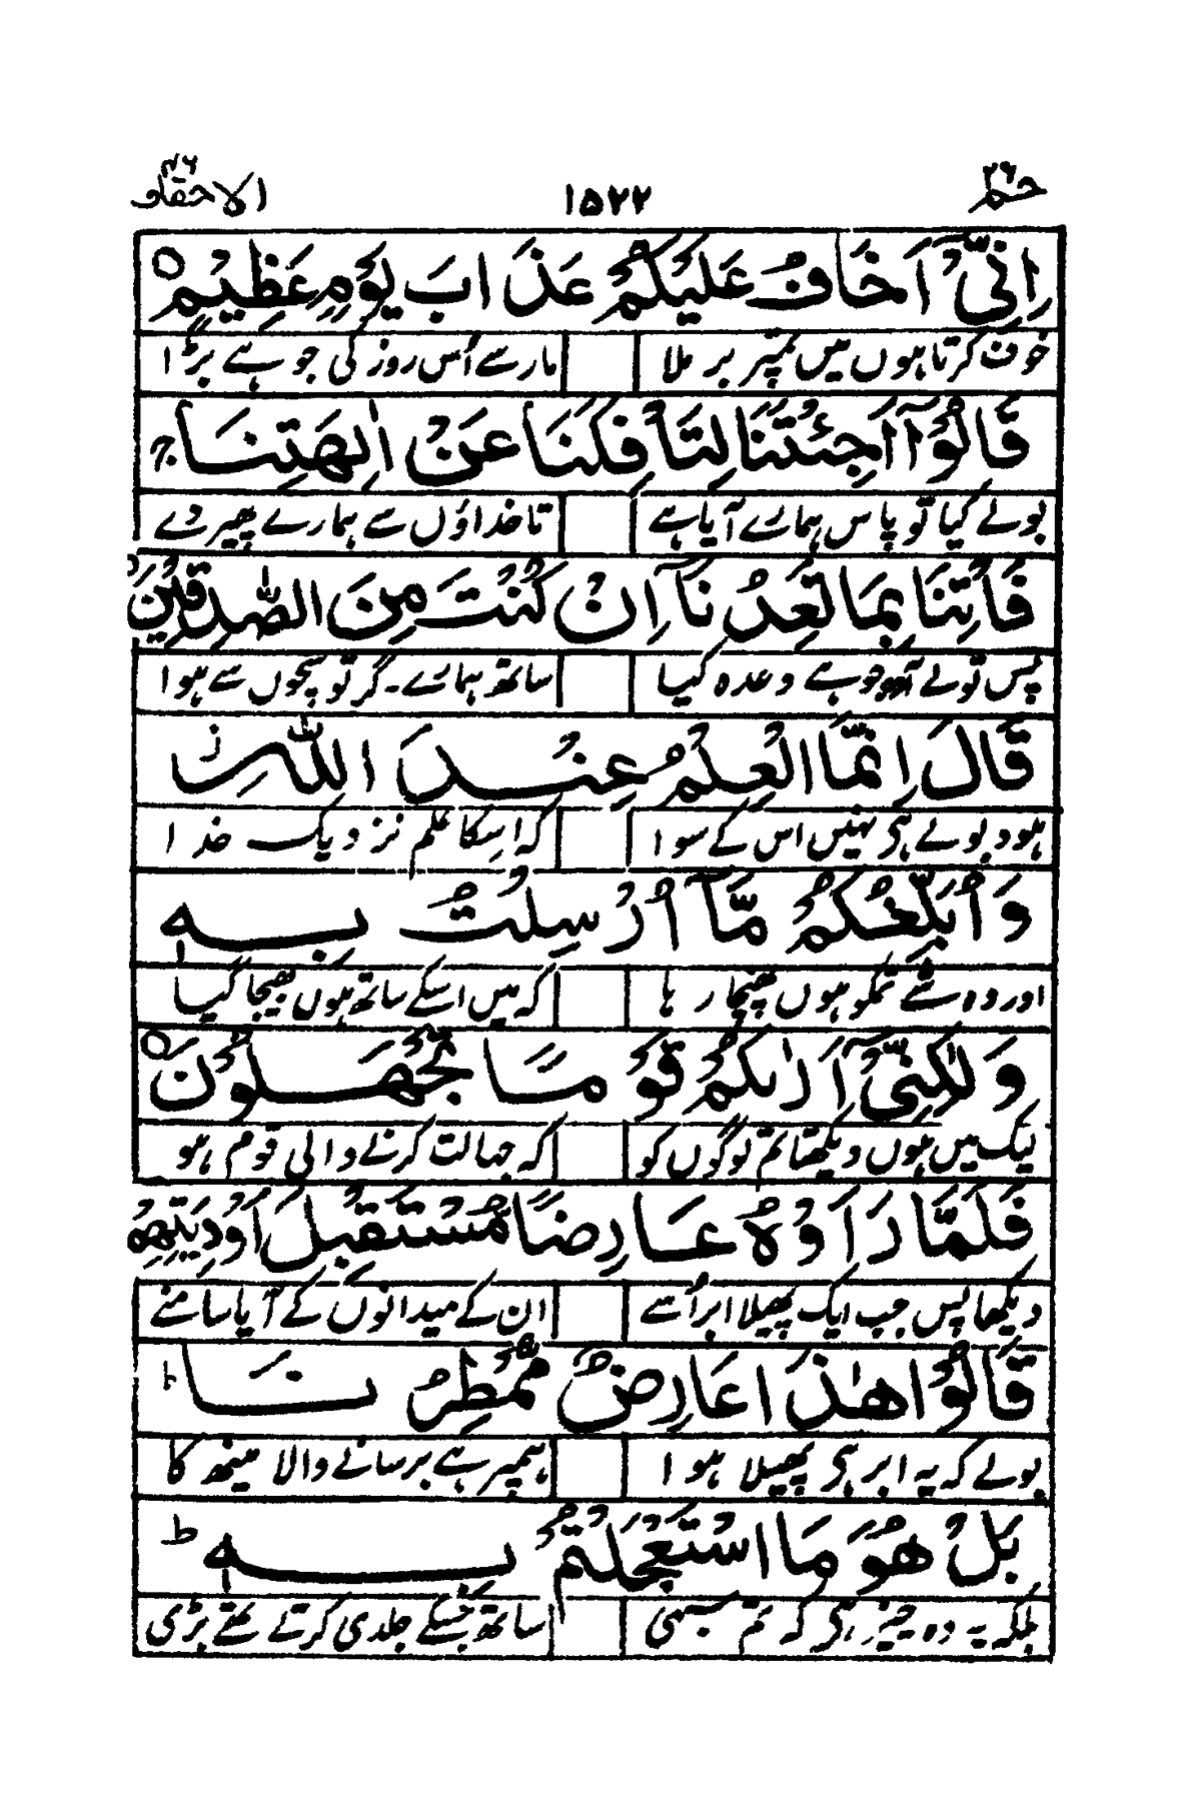 حٰم ٢٦ ١٥٢٢ الاحقاف ٤٦
اِنِّىْۤ اَخَافُ عَلَيْكُمْ عَذَابَ يَوْمٍ عَظِيْمٍ ○
خوف کرتا ہوں میں تمپر بر ملا مار سے اُس روز کی جو ہے بڑا
قَالُوْۤا اَجِئْتَنَا لِتَاْفِكَنَا عَنْ اٰلِهَتِنَا ج
بولے کیا تو پاس ہمارے آیا ہے تا خداؤں سے ہمارے پھیر دے
فَاْتِنَا بِمَا تَعِدُنَاۤ اِنْ كُنْتَ مِنَ الصّٰدِقِيْنَ
پس تو لے آ جو ہے وعدہ کیا ساتھ ہمارے۔ گر تو سچوں سے ہوا
قَالَ اِنَّمَا الْعِلْمُ عِنْدَ اللّٰهِ ز
ہود بولے ہی نہیں اس کے سوا کہ اسکا علم نزدیک خدا
وَاُبَلِّغُكُمْ مَّاۤ اُرْسِلْتُ بِهٖ
اور وہ شے تمکو ہوں پہنچا رہا کہ میں اسکے ساتھ ہوں بھیجا گیا
وَلٰكِنِّىْۤ اَرٰىكُمْ قَوْمًا تَجْهَلُوْنَ ○
لیک میں ہوں دیکھتا تم لوگوں کو کہ جہالت کرنے والی قوم ہو
فَلَمَّا رَاَوْهُ عَارِضًا مُّسْتَقْبِلَ اَوْدِيَتِهِمْ
دیکھا پس جب ایک پھیلا ابر اُسے ان کے میدانوں کے آیا سامنے
قَالُوْا هٰذَا عَارِضٌ مُّمْطِرُنَا ط
بولے کہ یہ ابر ہی پھیلا ہوا ہمپر ہے برسانے والا مینھ کا
بَلْ هُوَ مَا اسْتَعْجَلْتُمْ بِهٖ ط
بلکہ یہ وہ چیز ہی کہ تم سبھی ساتھ جسکے جلدی کرتے تھے بڑی